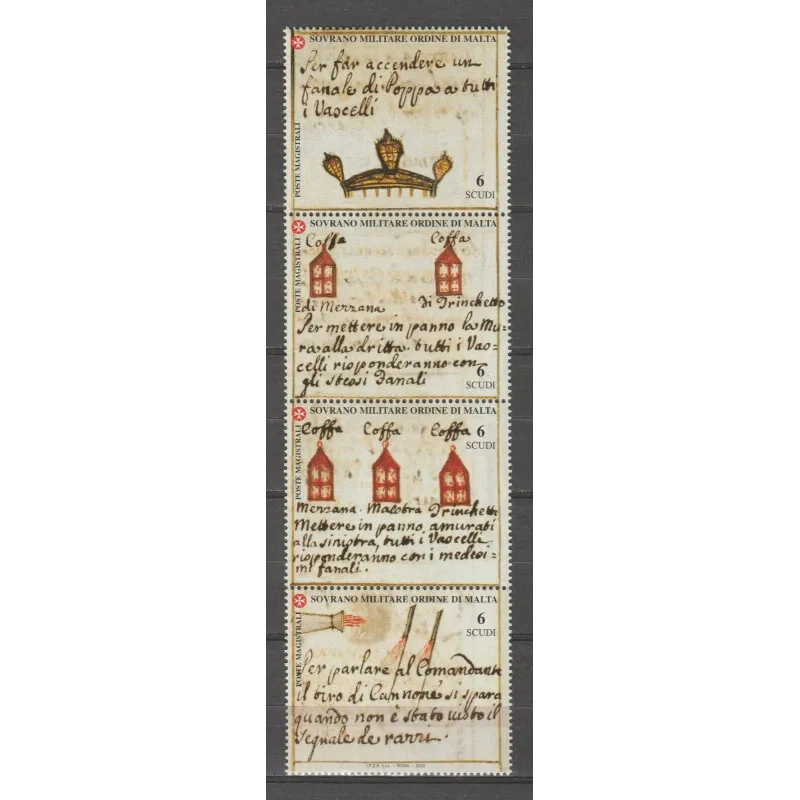 SOVRANO MILITARE ORDINE DI MALTA
Per far accendere un
fanale di Poppa a tutti
i Vascelli
POSTE MAGISTRALI
6
SCUDI
SOVRANO MILITARE ORDINE DI MALTA
Coffa Coffa
POSTE MAGISTRALI
di Mezzana di Trinchetto
Per mettere in panno la Mu-
ra alla dritta. tutti i Vas=
celli risponderanno con
gli stessi fanali
6
SCUDI
SOVRANO MILITARE ORDINE DI MALTA
Coffa Coffa Coffa
6
SCUDI
POSTE MAGISTRALI
Mezzana. Maestra Trinchetto
Mettere in panno amurati
alla sinistra, tutti i Vascelli
risponderanno con i medesi-
mi fanali.
SOVRANO MILITARE ORDINE DI MALTA
6
SCUDI
POSTE MAGISTRALI
Per parlare al Comandante
il tiro di Cannone si spara
quando non è stato visto il
Segnale de razzi.
ROMA